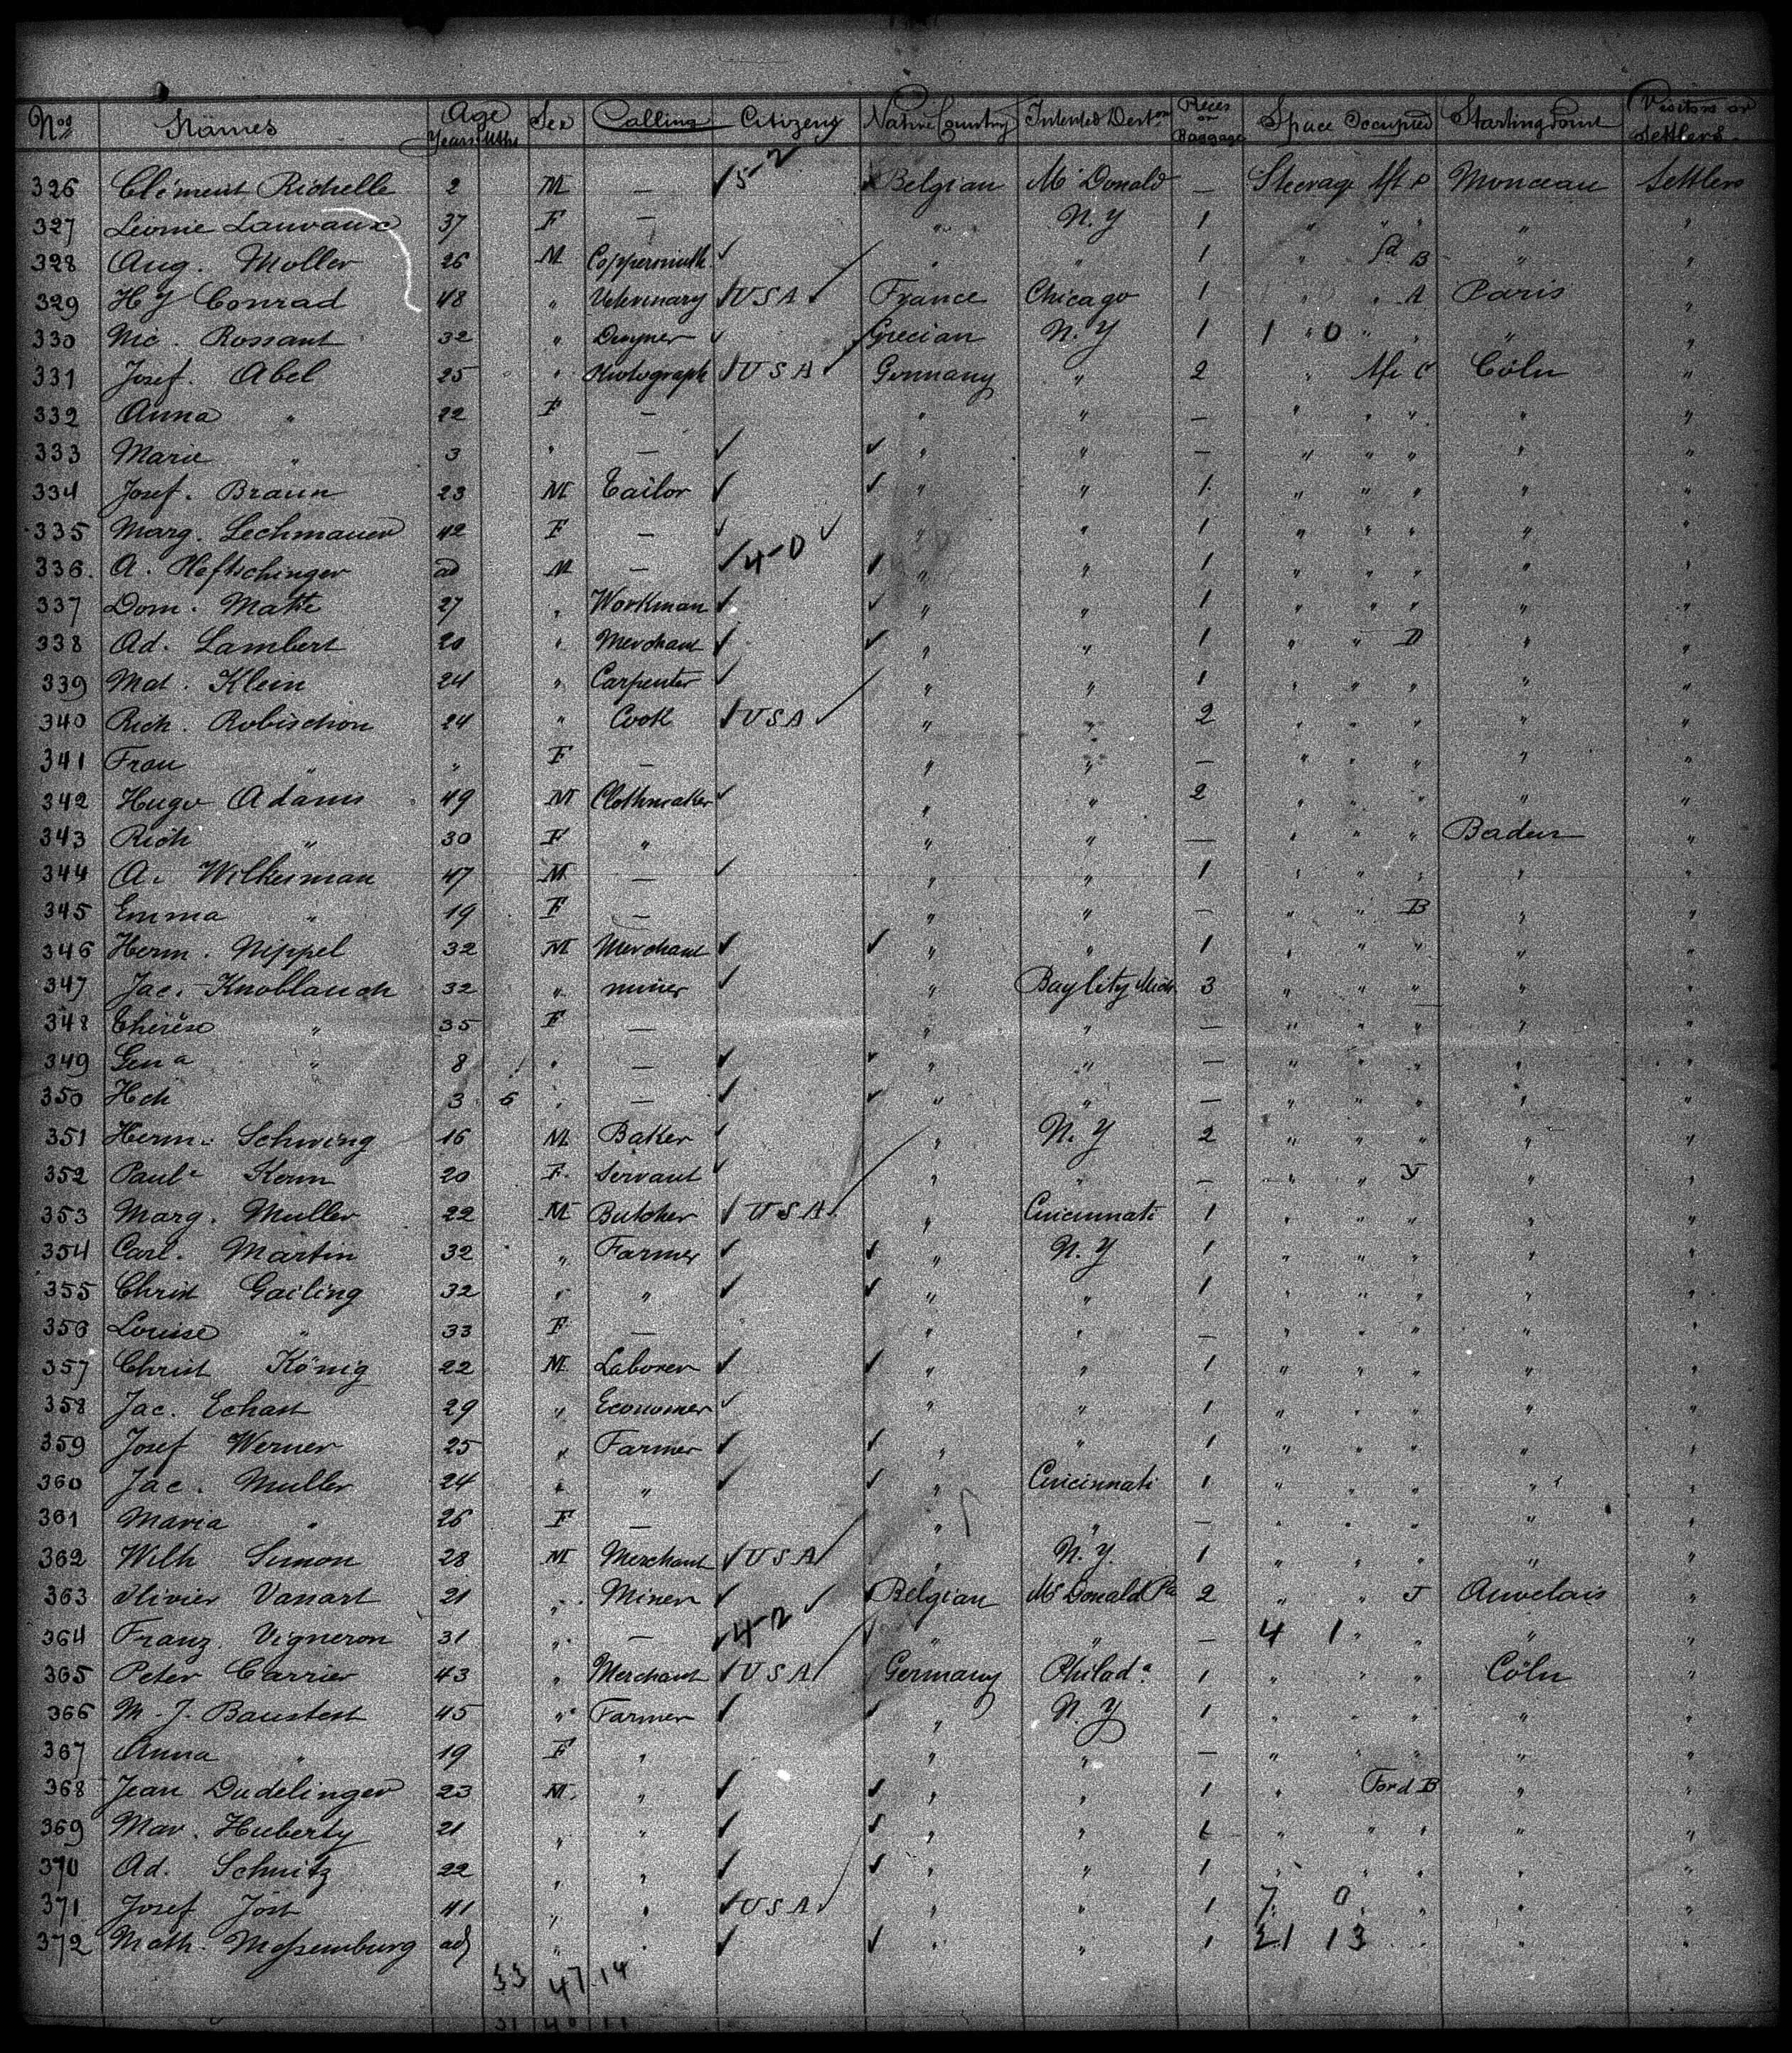 Nos Names Age Years Mths Sex Calling Citizens Native Country Intented Deston Pieces or Baggage Space Occupied Starting Point Visitors or Settlers
326 Clément Richelle 2 M — 5-2 Belgian Mc Donald — Steerage Aft Monceau Settlers
327 Leonie Lauvaux 37 F — " N.Y 1 " " " " "
328 Aug. Moller 26 M Coppersmith " " 1 " B " "
329 Hy Conrad 48 " Veterinary USA France Chicago 1 " " A Paris "
330 Nic. Rossant 32 " Grecian N.Y 1 1 " 0 " " " "
331 Josef. Abel 25 " Photograph USA Germany " 2 " Aft C Cöln "
332 Anna " 22 F — " " — " " " " "
333 Marie " 3 " — " " — " " " " "
334 Josef. Braun 23 M Tailor " " 1 " " " " "
335 Marg. Lechmauer 42 F — " " 1 " " " " "
336. A. Heftschinger ad M — 4-0 " " 1 " " " " "
337 Dom. Matte 27 " Workman " " 1 " " " " "
338 Ad. Lambert 20 " Merchant " " 1 " " D " "
339 Mat. Klein 24 " Carpenter " " 1 " " " " "
340 Rich. Robischon 24 " Cook USA " " 2 " " " " "
341 Frau " " F — " " — " " " " "
342 Hugo Adams 49 M Clothmaker " " 2 " " " " "
343 Rich " 30 F " " " — " " " Baden "
344 A. Wilkesman 47 M — " " 1 " " " " "
345 Emma " 19 F — " " — " " B " "
346 Herm. Nippel 32 M Merchant " " 1 " " " " "
347 Jac. Knoblauch 32 " miner " Bay City Mich 3 " " " " "
348 Thérèse " 35 F — " " — " " " " "
349 Gena " 8 " — " " — " " " " "
350 Hch 3 6 " — " " — " " " " "
351 Herm. Schwing 16 M Baker " N.Y 2 " " " " "
352 Paula Kern 20 F. Servant " " — " " Y " "
353 Marg. Muller 22 M Butcher USA " Cincinnati 1 " " " " "
354 Carl. Martin 32 " Farmer " N.Y 1 " " " " "
355 Christ Gailing 32 " " " " 1 " " " " "
356 Louise " 33 F — " " — " " " " "
357 Christ König 22 M Laborer " " 1 " " " " "
358 Jac. Echart 29 " Economer " " 1 " " " " "
359 Josef Werner 25 " Farmer " " 1 " " " " "
360 Jac. Muller 24 " " " Cincinnati 1 " " " " "
361 Maria " 26 F — " " — " " " " "
362 Wilh Simon 28 M Merchant USA " N.Y. 1 " " " " "
363 Olivier Vanart 21 " Miner Belgian Mc Donald Pa 2 " " J Auvelais "
364 Franz. Vigneron 31 " — 4-2 " " — 4 1 " " " "
365 Peter Carrier 43 " Merchant USA Germany Philada. 1 " " " Cöln "
366 M. J. Baustert 45 " Farmer " N.Y 1 " " " " "
367 Anna " 19 F " " " — " " " " "
368 Jean Dudelinger 23 M. " " " 1 " Ford B " "
369 Mar. Huberty 21 " " " " 1 " " " " "
370 Ad. Schmitz 22 " " " " 1 " " " " "
371 Josef Jöst 41 " " USA " " 1 7 0 " " " "
372 Math. Massemburg ad " " " " 1 21 13 " " "
33 47 14
31